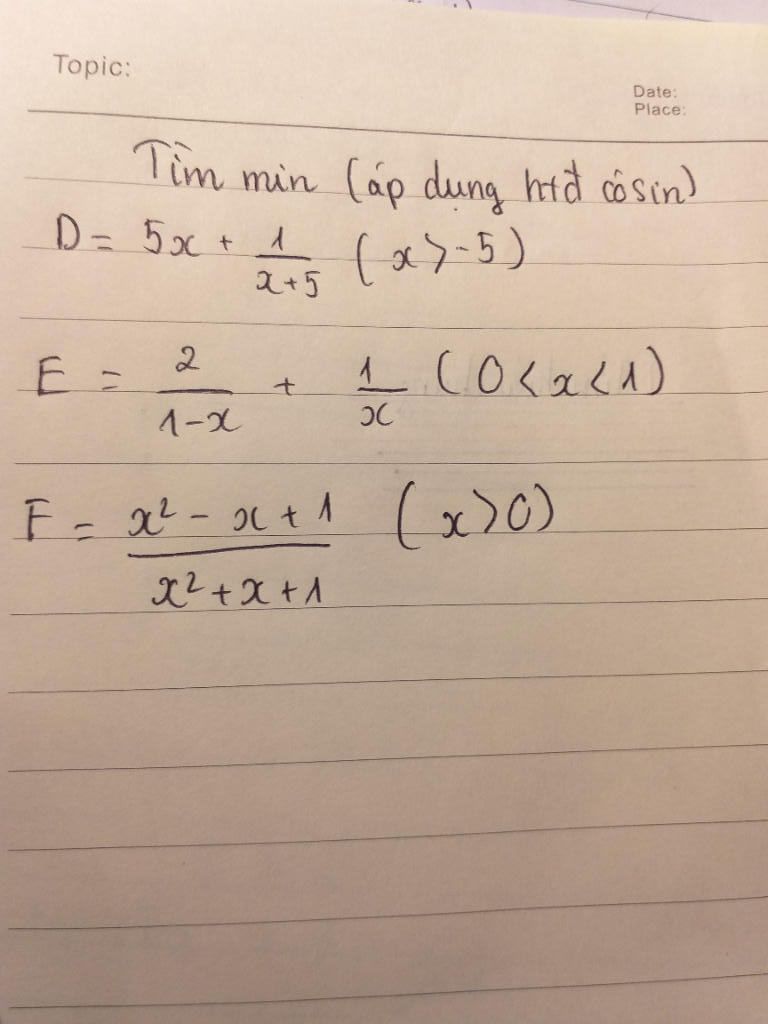 Topic:
Date:
Place:
Tìm min (áp dụng htđ côsin)
D = 5x + 1/(x+5) (x > -5)
E = 2/(1-x) + 1/x (0 < x < 1)
F = (x² - x + 1)/(x² + x + 1) (x > 0)